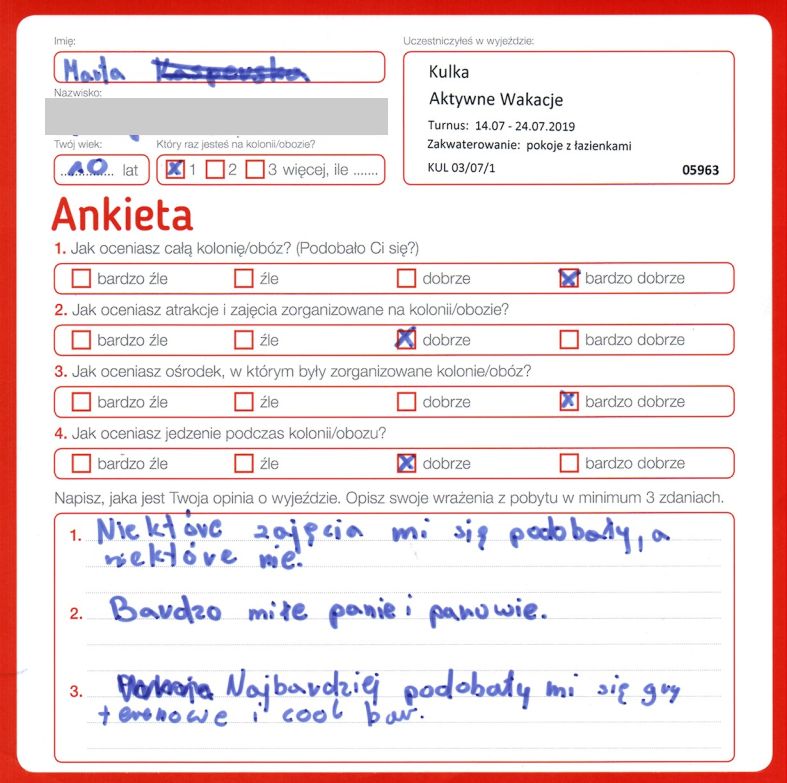 Imię:
Uczestniczyłeś w wyjeździe:
Marta
Kulka
Aktywne Wakacje
Nazwisko:
Turnus: 14.07 - 24.07.2019
Zakwaterowanie: pokoje z łazienkami
KUL 03/07/1
05963
Twój wiek:
Który raz jesteś na kolonii/obozie?
10 lat
1 2 3 więcej, ile .......
Ankieta
1. Jak oceniasz całą kolonię/obóz? (Podobało Ci się?)
bardzo źle źle dobrze bardzo dobrze
2. Jak oceniasz atrakcje i zajęcia zorganizowane na kolonii/obozie?
bardzo źle źle dobrze bardzo dobrze
3. Jak oceniasz ośrodek, w którym były zorganizowane kolonie/obóz?
bardzo źle źle dobrze bardzo dobrze
4. Jak oceniasz jedzenie podczas kolonii/obozu?
bardzo źle źle dobrze bardzo dobrze
Napisz, jaka jest Twoja opinia o wyjeździe. Opisz swoje wrażenia z pobytu w minimum 3 zdaniach.
1. Niektóre zajęcia mi się podobały, a
niektóre nie.
2. Bardzo miłe panie i panowie.
3. Najbardziej podobały mi się gry
terenowe i cool bar.